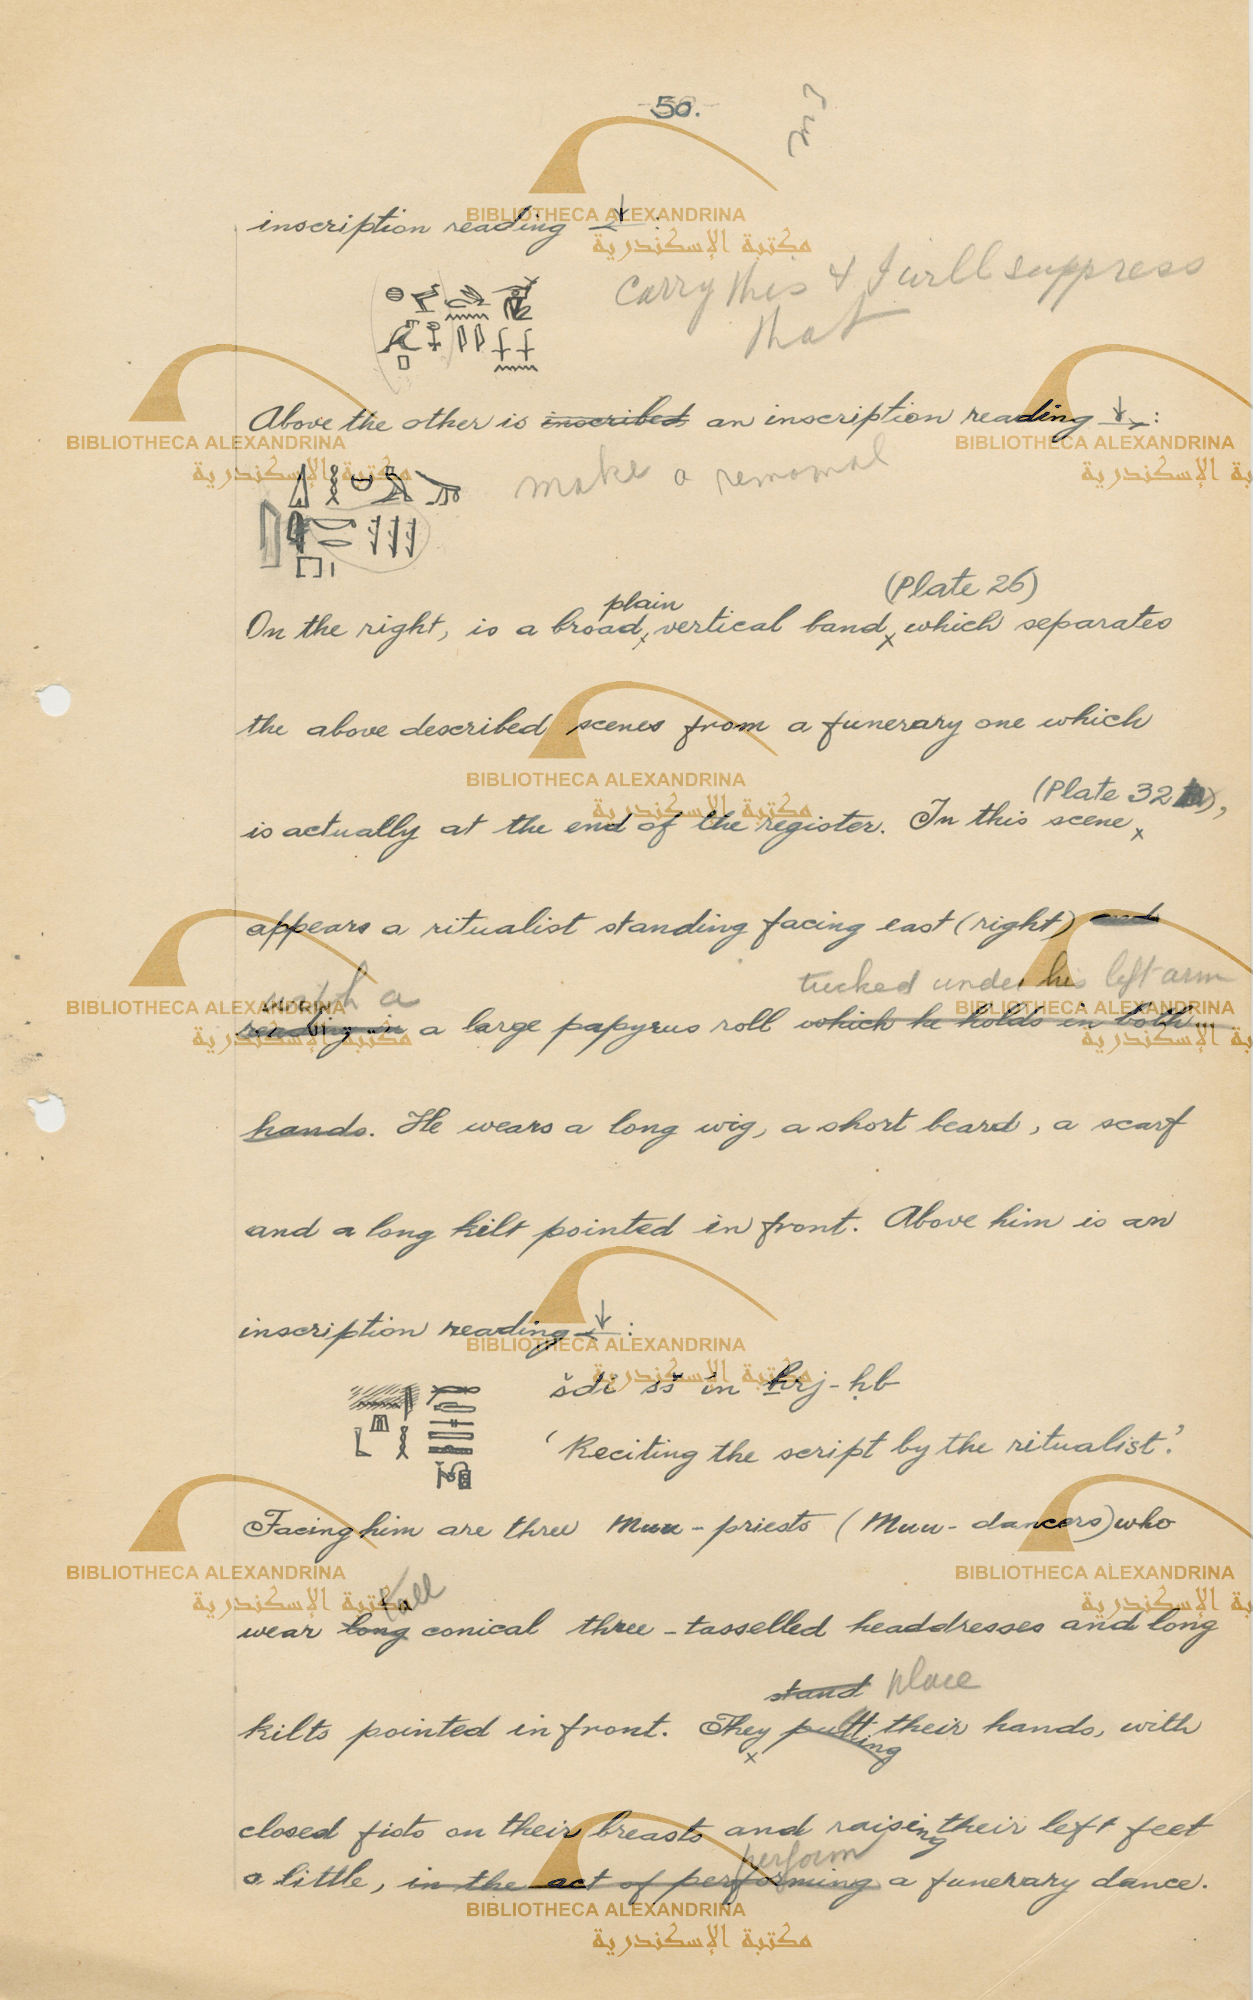 50.
inscription reading ↓← :
carry this & I will suppress
that
Above the other is inscribed an inscription reading ↓→ :
make a removal
(Plate 26)
plain
On the right, is a broad, vertical band, which separates
the above described scenes from a funerary one which
(Plate 32),
is actually at the end of the register. In this scene
appears a ritualist standing facing east (right) and
tucked under his left arm
reading in a large papyrus roll which he holds in both
hands. He wears a long wig, a short beard, a scarf
and a long kilt pointed in front. Above him is an
inscription reading ↓← :
šdi sš in ẖrj-ḥb
'Reciting the script by the ritualist.'
Facing him are three Muu-priests (Muu-dancers) who
tall
wear long conical three-tasselled headdresses and long
stand place
kilts pointed in front. They putting their hands, with
closed fists on their breasts and raising their left feet
perform
a little, in the act of performing a funerary dance.
BIBLIOTHECA ALEXANDRINA
مكتبة الإسكندرية